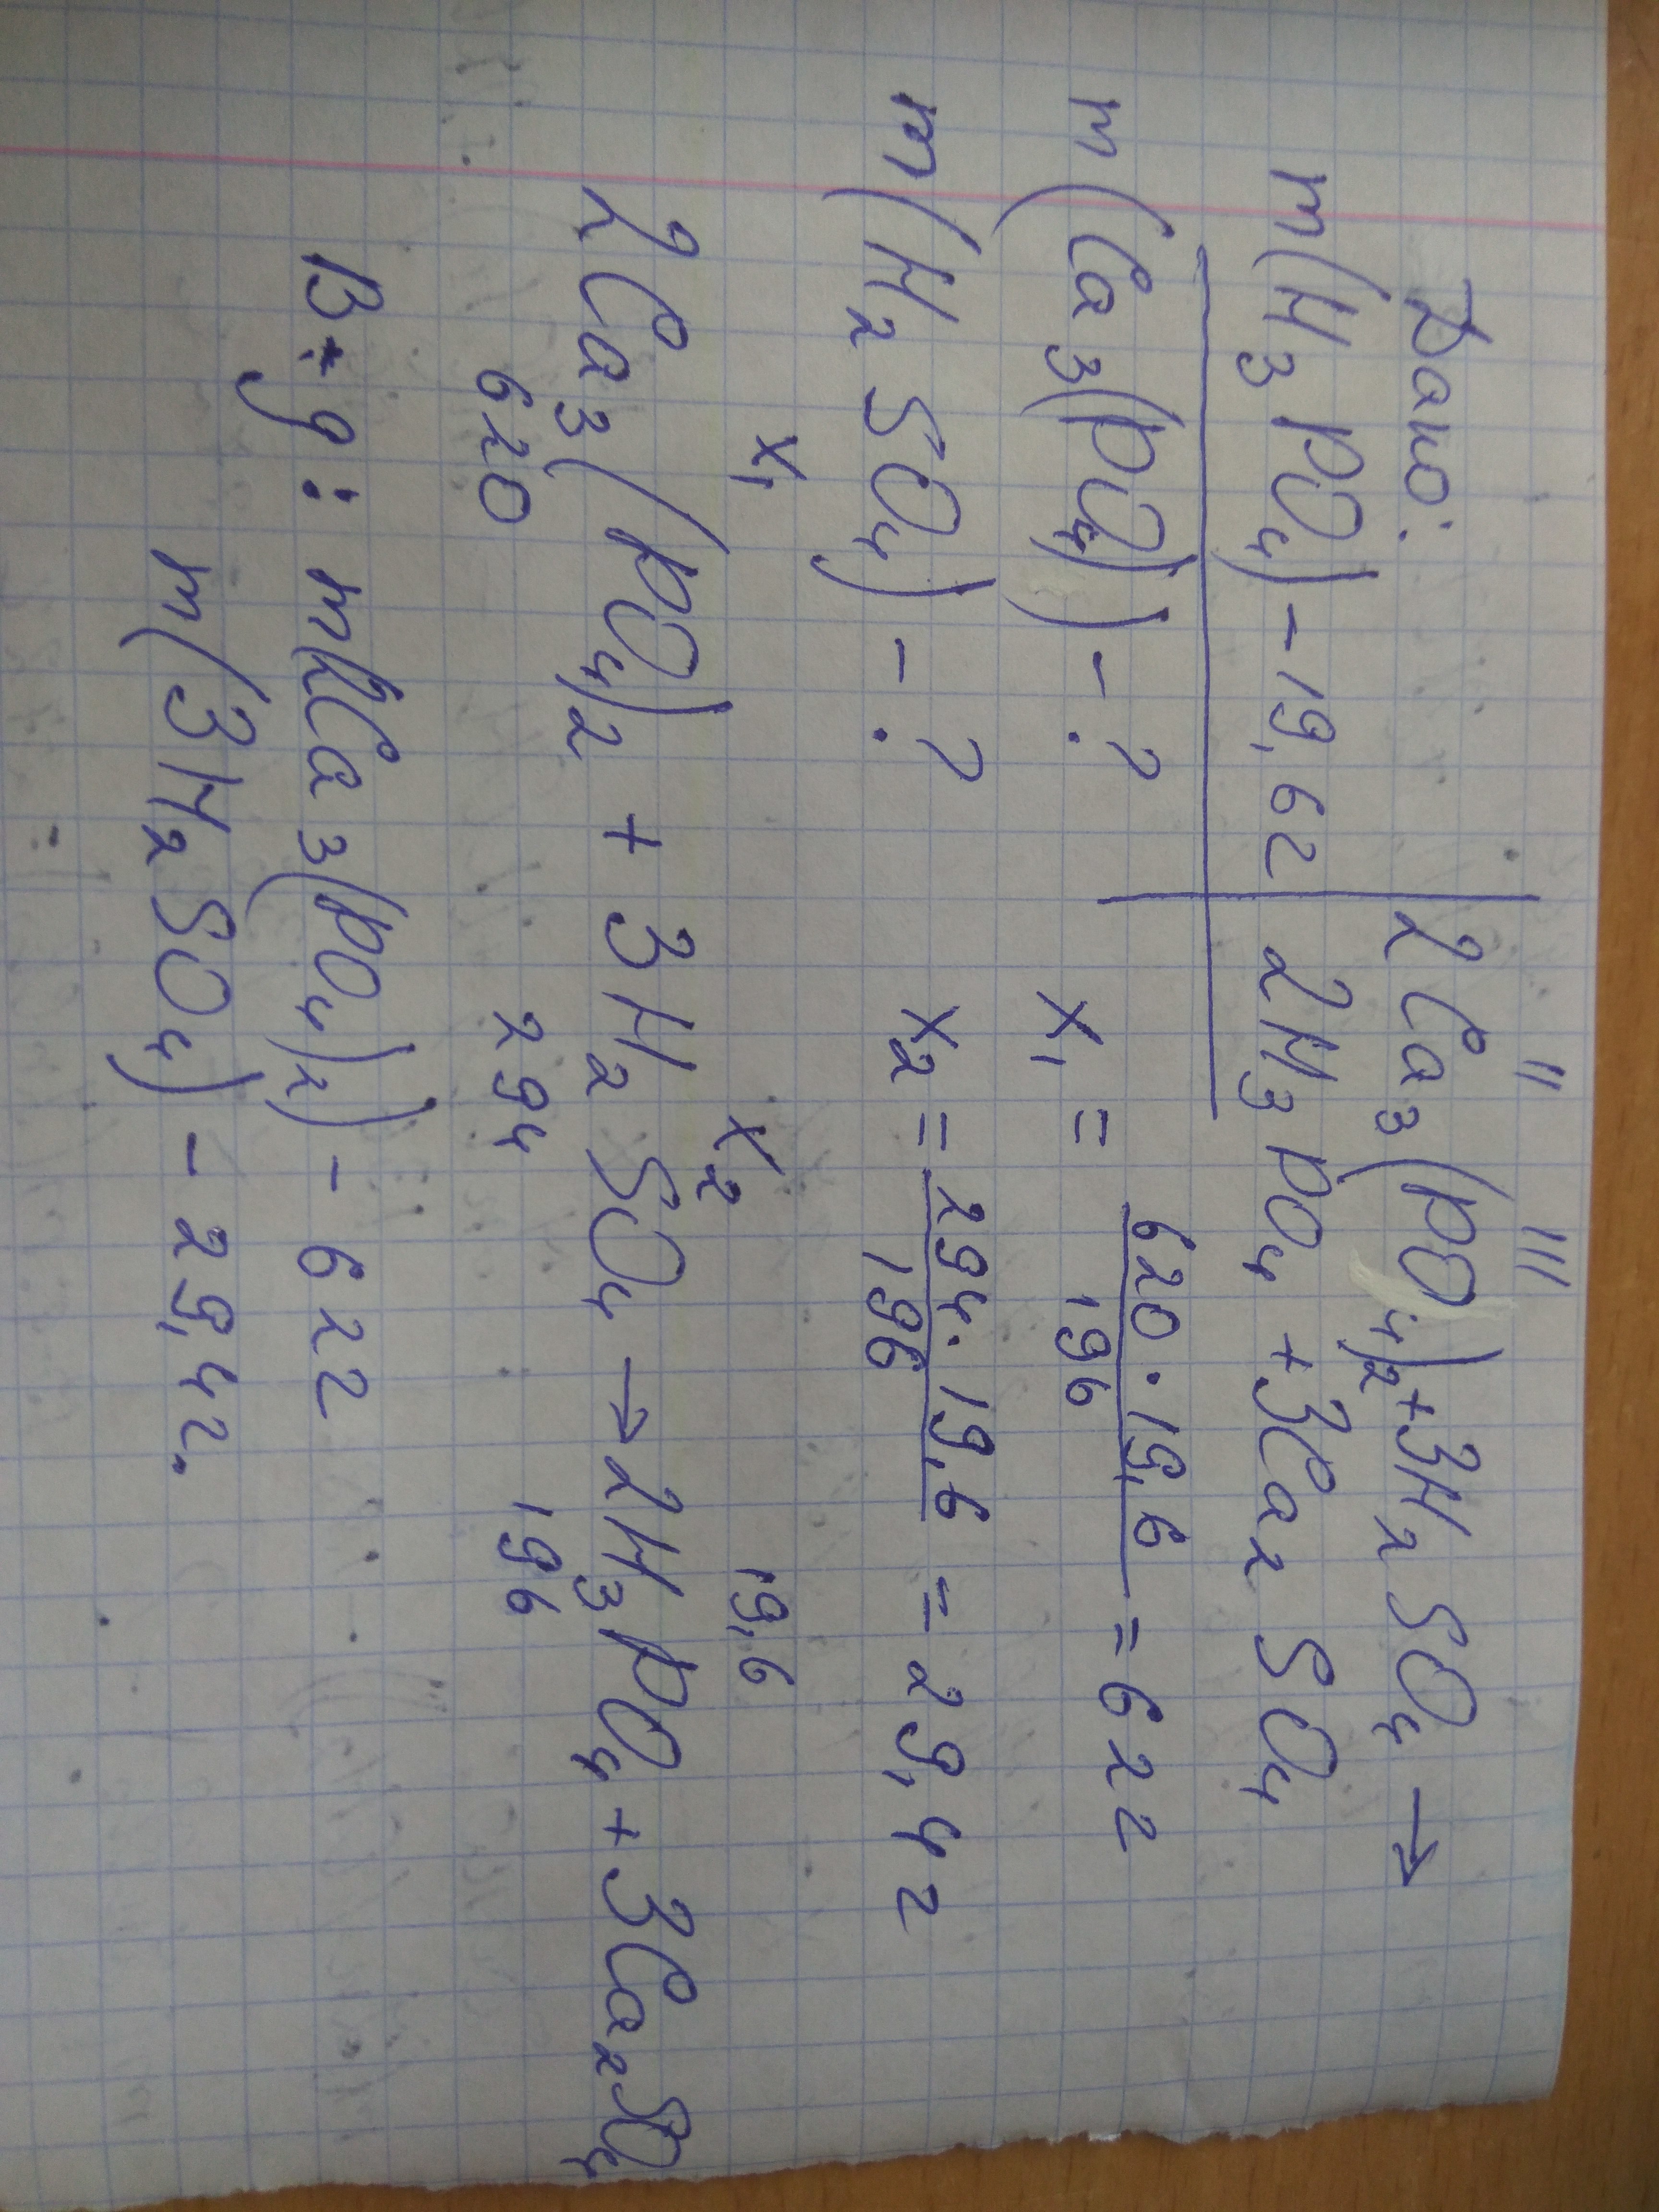 Дано:
m(H3PO4) - 19,6г
m(Ca3(PO4)) - ?
m(H2SO4) - ?
II III
2Ca3(PO4)2 + 3H2SO4 →
2H3PO4 + 3Ca2SO4
x1 = 620 · 19,6 / 196 = 62г
x2 = 294 · 19,6 / 196 = 29,4г
x1 x2 19,6
2Ca3(PO4)2 + 3H2SO4 → 2H3PO4 + 3Ca2SO4
620 294 196
В-g: m(2Ca3(PO4)2) - 62г
m(3H2SO4) - 29,4г.